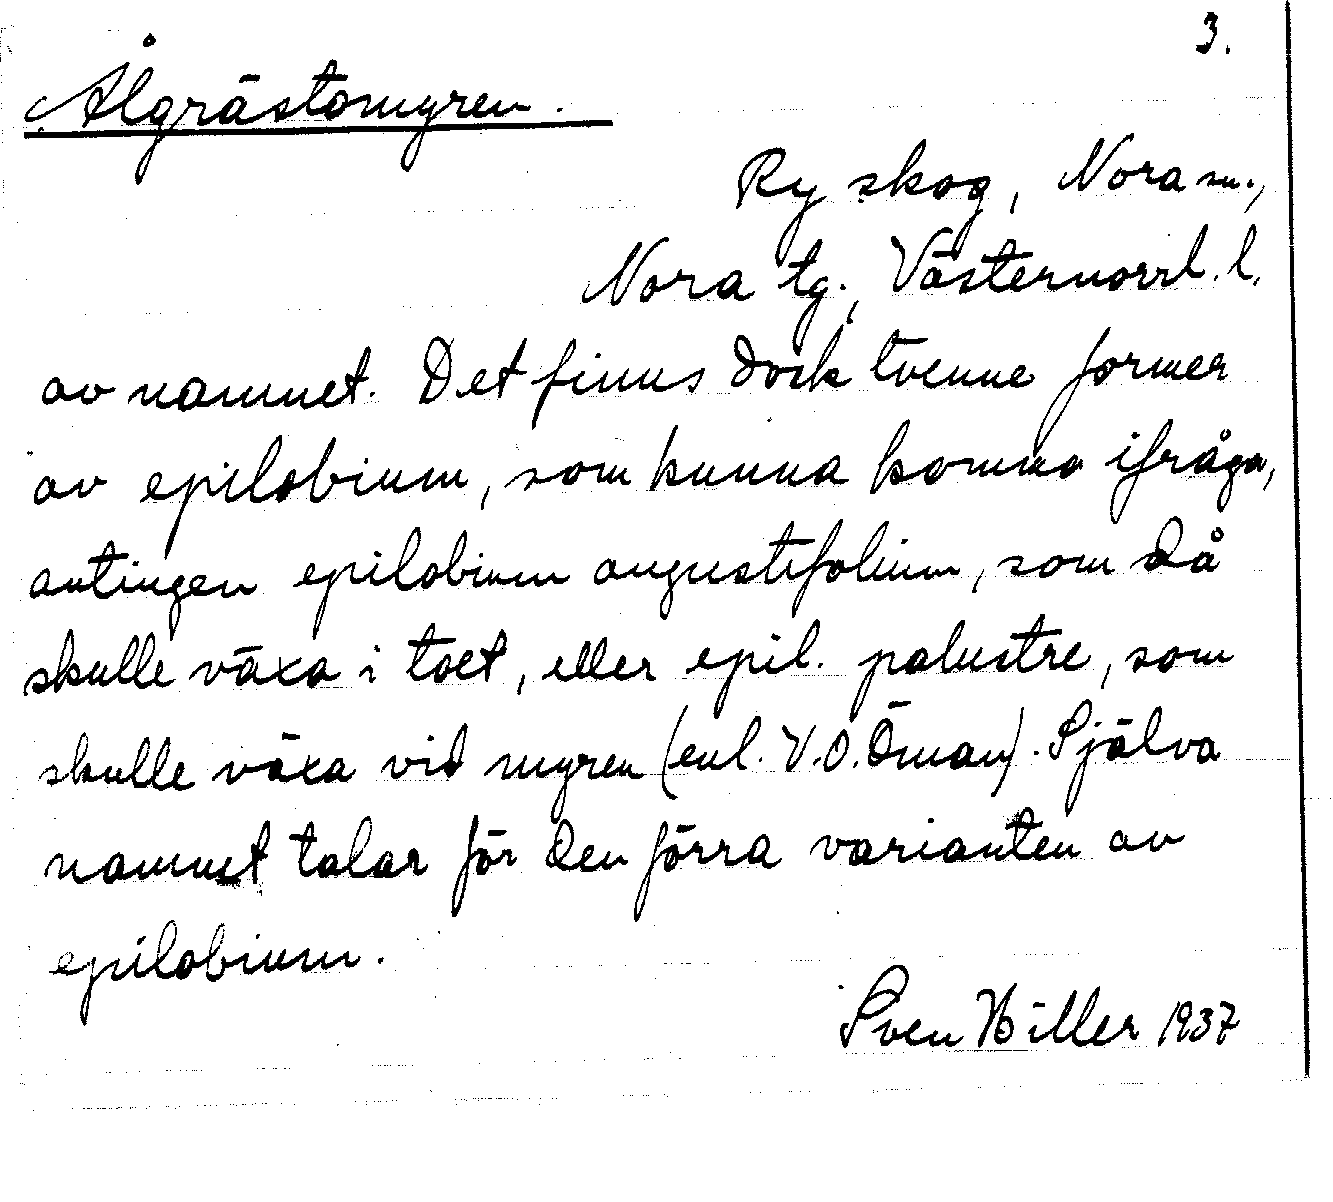 3.
Ålgrästomyren.
Ry skog, Nora sn.,
Nora tg., Västernorrl. l.
av namnet. Det finns dock tvenne former
av epilobium, som kunna komma ifråga,
antingen epilobium angustifolium, som då
skulle växa i toet, eller epil. palustre, som
skulle växa vid myren (enl. V.O. Öman). Själva
namnet talar för den förra varianten av
epilobium.
Sven Hiller 1937